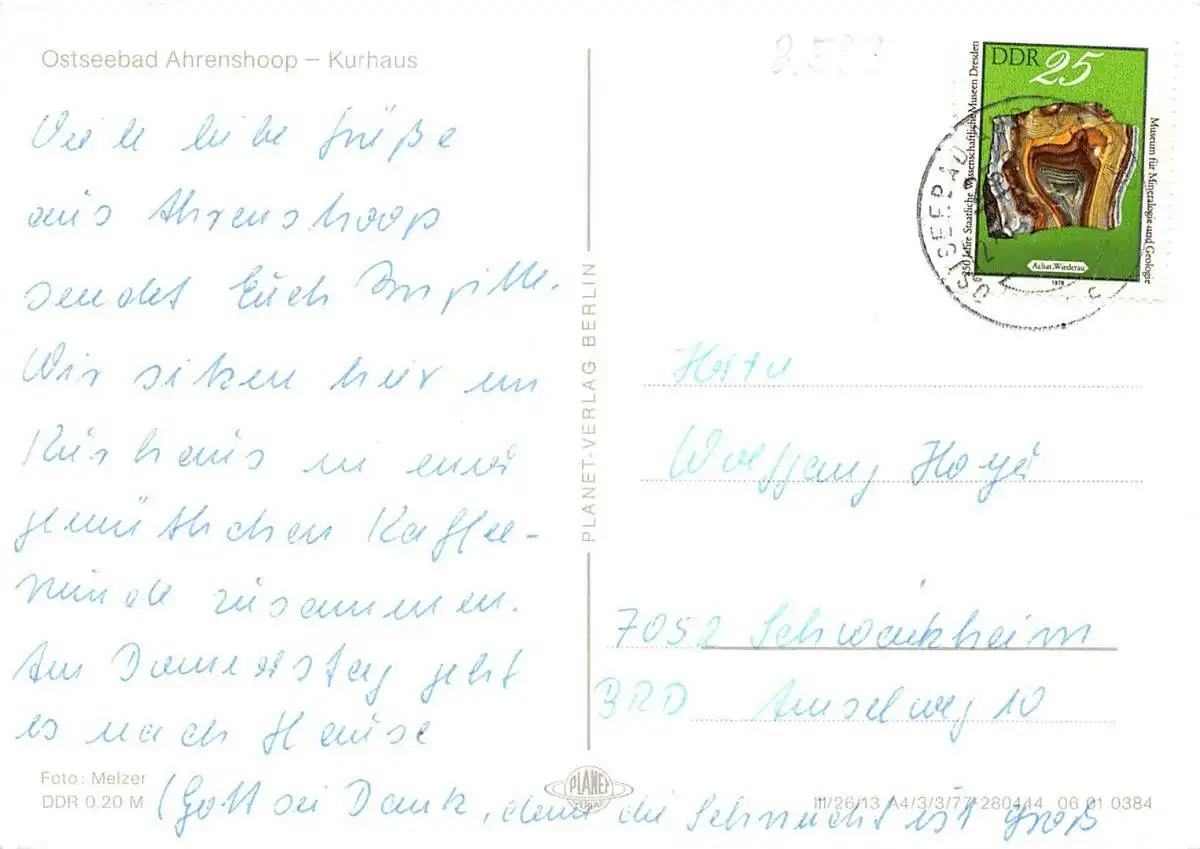 Ostseebad Ahrenshoop – Kurhaus
Viele liebe Grüße
aus Ahrenshoop
sendet Euch Brigitte.
Wir sitzen hier im
Kurhaus in einer
gemütlichen Kaffee-
runde zusammen.
Am Donnerstag geht
es nach Hause
(Gott sei Dank, denn die Sehnsucht ist groß
Foto: Melzer
DDR 0,20 M
PLANET-VERLAG BERLIN
PLANET
VERLAG
III/26/13 A4/3/3/77-280444 06 01 0384
DDR 25
350 Jahre Staatliche Wissenschaftliche Museen Dresden
Museum für Mineralogie und Geologie
Achat, Wiederau
1978
OSTSEEBAD
c
Herrn
Wolfgang Hoyer
7052 Schwaikheim
BRD Amselweg 10